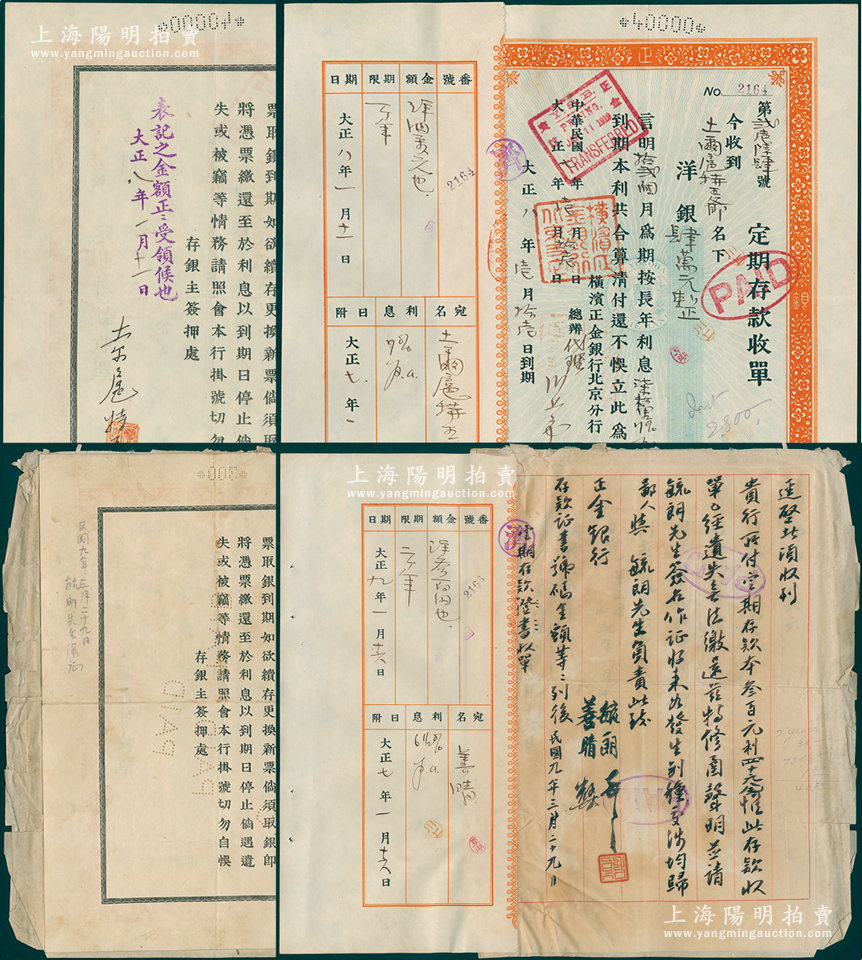 上海陽明拍賣
www.yangmingauction.com
*40000*
票取銀到期如欲續存更換新票倘須取銀卽
將憑票繳還至於利息以到期日停止倘
失或被竊等情務請照會本行掛號切勿
存銀主簽押處
表記之金額正ニ受領候也
大正八年一月十一日
番號
金額
期限
期日
2164
洋四万元也
一年
大正八年一月十一日
宛名
利息
日附
土爾扈特王
7%
p.a.
大正七年一
*40000*
No. 2164
第貳壹陸肆號
定期存款收單
今收到
土爾扈特王爺 名下
洋銀肆萬元整
PAID
言明拾貳個月爲期按長年利息
到期本利共合算清付還不悞立此爲
中華民國七年壹月拾壹日
橫濱正金銀行北京分行
總辦代理
大正八年壹月拾壹日到期
TRANSFERRED
2,800
*300*
票取銀到期如欲續存更換新票倘須取銀卽
將憑票繳還至於利息以到期日停止倘遇遺
失或被竊等情務請照會本行掛號切勿自悞
存銀主簽押處
PAID
民國九年三月二十九日
番號
金額
期限
期日
洋參百円也
二ケ年
大正九年一月十六日
宛名
利息
日附
善晴
p.a.
大正七年一月十六日
逕啓者頃收到
貴行所付定期存款本叁百元利四十九元惟此存款收
單已經遺失無法繳還茲特修函聲明並請
毓朗先生簽名作証將來如發生別種交涉均歸
鄙人與毓朗先生負責此致
正金銀行
毓朗
善晴
存款証書號碼金額等等列後
民國九年三月二十九日
定期存款證書收單
上海陽明拍賣
www.yangmingauction.com